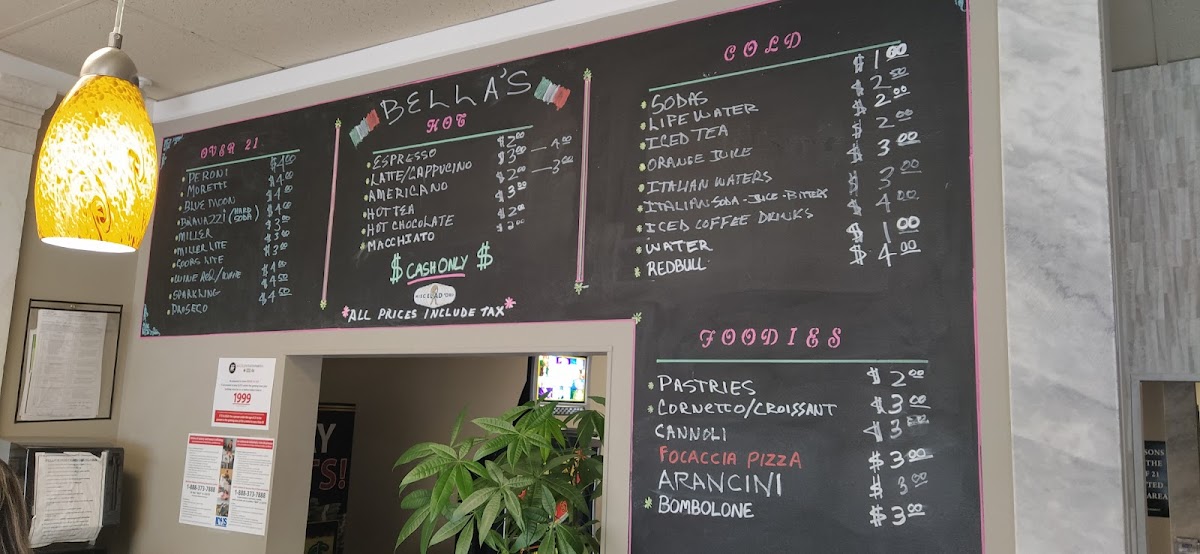 BELLA'S
OVER 21
PERONI $4.00
MORETTI $4.00
BLUE MOON $4.00
BRAVAZZI (HARD SODA) $4.00
MILLER $3.00
MILLER LITE $3.00
COORS LITE $3.00
WINE $4.00
SPARKLING $4.50
PROSECO $4.00
HOT
ESPRESSO $2.00
LATTE/CAPPUCINO $3.00 — 4.00
AMERICANO $2.00 — 3.00
HOT TEA $3.00
HOT CHOCOLATE $2.00
MACCHIATO $2.00
$ CASH ONLY $
*ALL PRICES INCLUDE TAX*
COLD
SODAS $1.00
LIFE WATER $2.00
ICED TEA $2.00
ORANGE JUICE $2.00
ITALIAN WATERS $3.00
ITALIAN SODA-JUICE-BITERS $3.00
ICED COFFEE DRINKS $4.00
WATER $1.00
REDBULL $4.00
FOODIES
PASTRIES $2.00
CORNETTO/CROISSANT $3.00
CANNOLI $3.00
FOCACCIA PIZZA $3.00
ARANCINI $3.00
BOMBOLONE $3.00
1999
1-888-373-7888
1-888-373-7888
SONS
THE
F 21
TED
AREA